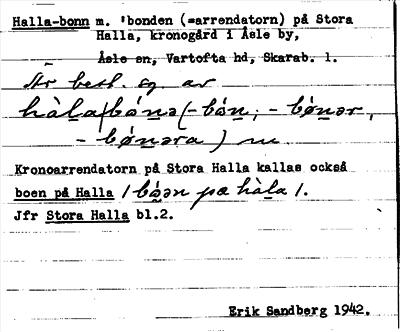 Halla-bonn m. 'bonden (=arrendatorn) på Stora
Halla, kronogård i Åsle by,
Åsle sn, Vartofta hd, Skarab. l.
Är best. sg. av
hàla|bónə (-bón; -bónər,
-bónəra) m
Kronoarrendatorn på Stora Halla kallas också
boen på Halla / bóən pæ hàla /.
Jfr Stora Halla bl.2.
Erik Sandberg 1942.